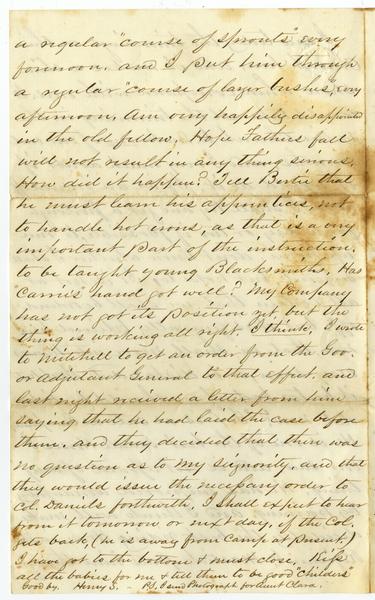 a regular "course of sprouts" every
forenoon. and I put him through
a regular "course of lager bushes", every
afternoon. Am very happily disappointed
in the old fellow. Hope Fathers fall
will not result in any thing serious.
How did it happen? Tell Bertie that
he must learn his apprentices, not
to handle hot irons, as that is a very
important part of the instruction,
to be taught young Blacksmiths. Has
Carrie's hand got well? My Company
has not got its position yet, but the
thing is working all right, I think, I wrote
to Mitchell to get an order from the Gov.
or adjutant General to that effect. and
last night recieved a letter from him
saying that he had laid the case before
them. and they decided that there was
no question as to my signority, and that
they would issue the necessary order to
Col. Daniels forthwith, I shall expect to hear
from it tomorrow or next day, if the Col.
gets back, (he is away from Camp at present.)
I have got to the bottom & must close, Kiss
all the babies for me & tell them to be good "childers"
Good by. Henry S. - P.S. I send Photograph for Aunt Clara.